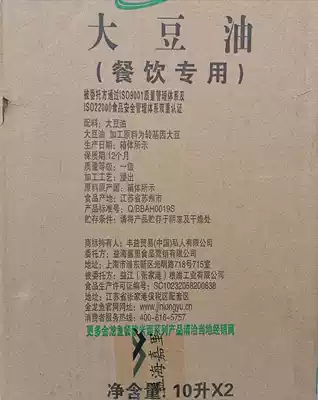 大豆油
(餐饮专用)
被委托方通过ISO9001质量管理体系及
ISO22000食品安全管理体系双重认证
配料：大豆油
大豆油 加工原料为转基因大豆
生产日期：箱体所示
保质期：12个月
质量等级：一级
加工工艺：浸出
原料原产国：箱体所示
食品产地：江苏省苏州市
产品标准号：Q/BBAH0019S
贮存条件：请将产品贮存于阴凉及干燥处
商标持有人：丰益贸易(中国)私人有限公司
委托方：益海嘉里食品营销有限公司
地址：上海市浦东新区光明路718号715室
被委托方：益江（张家港）粮油工业有限公司
食品生产许可证编号：SC10232058200638
地址：江苏省张家港保税区配套区
金龙鱼官网网址：www.jinlongyu.cn
消费者服务热线：400-616-5757
更多金龙鱼餐饮系列产品请洽当地经销商
益海嘉里
净含量：10升X2